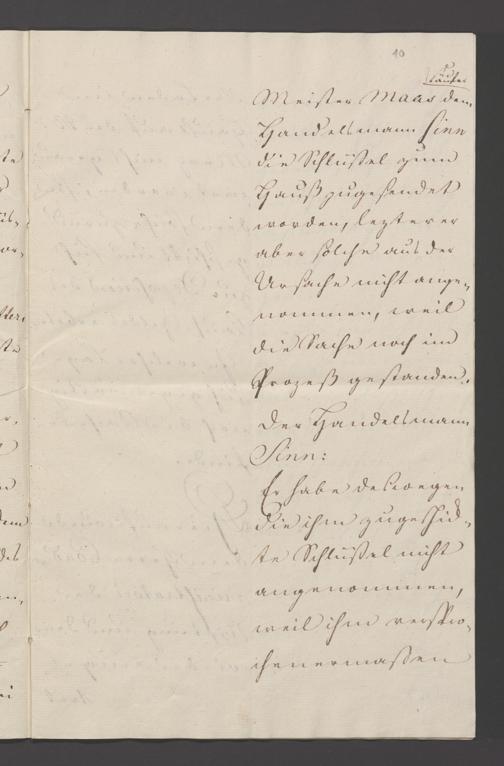 10
Meister Maar dem
Handelsmann Sinn
die Schlüßel zum
Hauß zugesendet
worden, lezterer
aber solche aus der
Ursache nicht ange,
nommen, weil
die Sache noch im
Prozeß gestanden.
Der Handelsmann
Sinn:
Er habe deswegen
die ihm zugeschik,
te Schlüßel nicht
angenommen,
weil ihm verspro,
chenermaßen